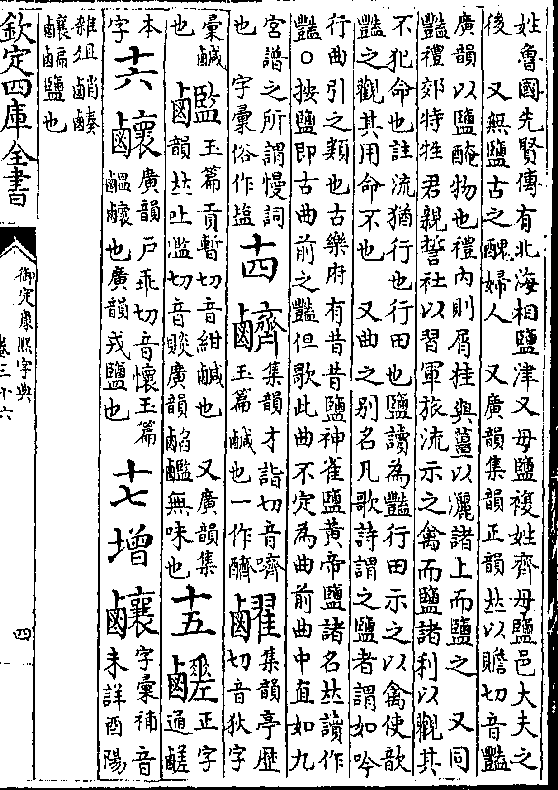 姓魯國先賢傳有北海相鹽津又母鹽複姓齊母鹽邑大夫之
後　又無鹽古之醜婦人　又廣韻集韻正韻𠀤以贍切音豔
廣韻以鹽醃物也禮内則屑桂與薑以灑諸上而鹽之　又同
豔禮郊特牲君親誓社以習軍旅流示之禽而鹽諸利以觀其
不犯命也註流猶行也行田也鹽讀為豔行田示之以禽使歆
豔之觀其用命不也　又曲之别名凡歌詩謂之鹽者謂如吟
行曲引之類也古樂府有昔昔鹽神雀鹽黄帝鹽諸名𠀤讀作
豔○按鹽即古曲前之豔但歌此曲不定為曲前曲中直如九
宫譜之所謂慢詞
也　字彙俗作塩
十四
集韻才詣切音嚌
玉篇鹹也一作䶒
集韻亭歷
切音狄字
彙鹹
也
玉篇貢暫切音紺鹹也　又廣韻集
韻𠀤吐濫切音賧廣韻䤘䶠無味也
十五
正字
通鹺
本
字
十六
廣韻戸乖切音懷玉篇
䶞䶐也廣韻戎鹽也
十七
增
字彙補音
未詳酉陽
雜俎
鹽也
欽定四庫全書
御定康熙字典
卷三十六
四